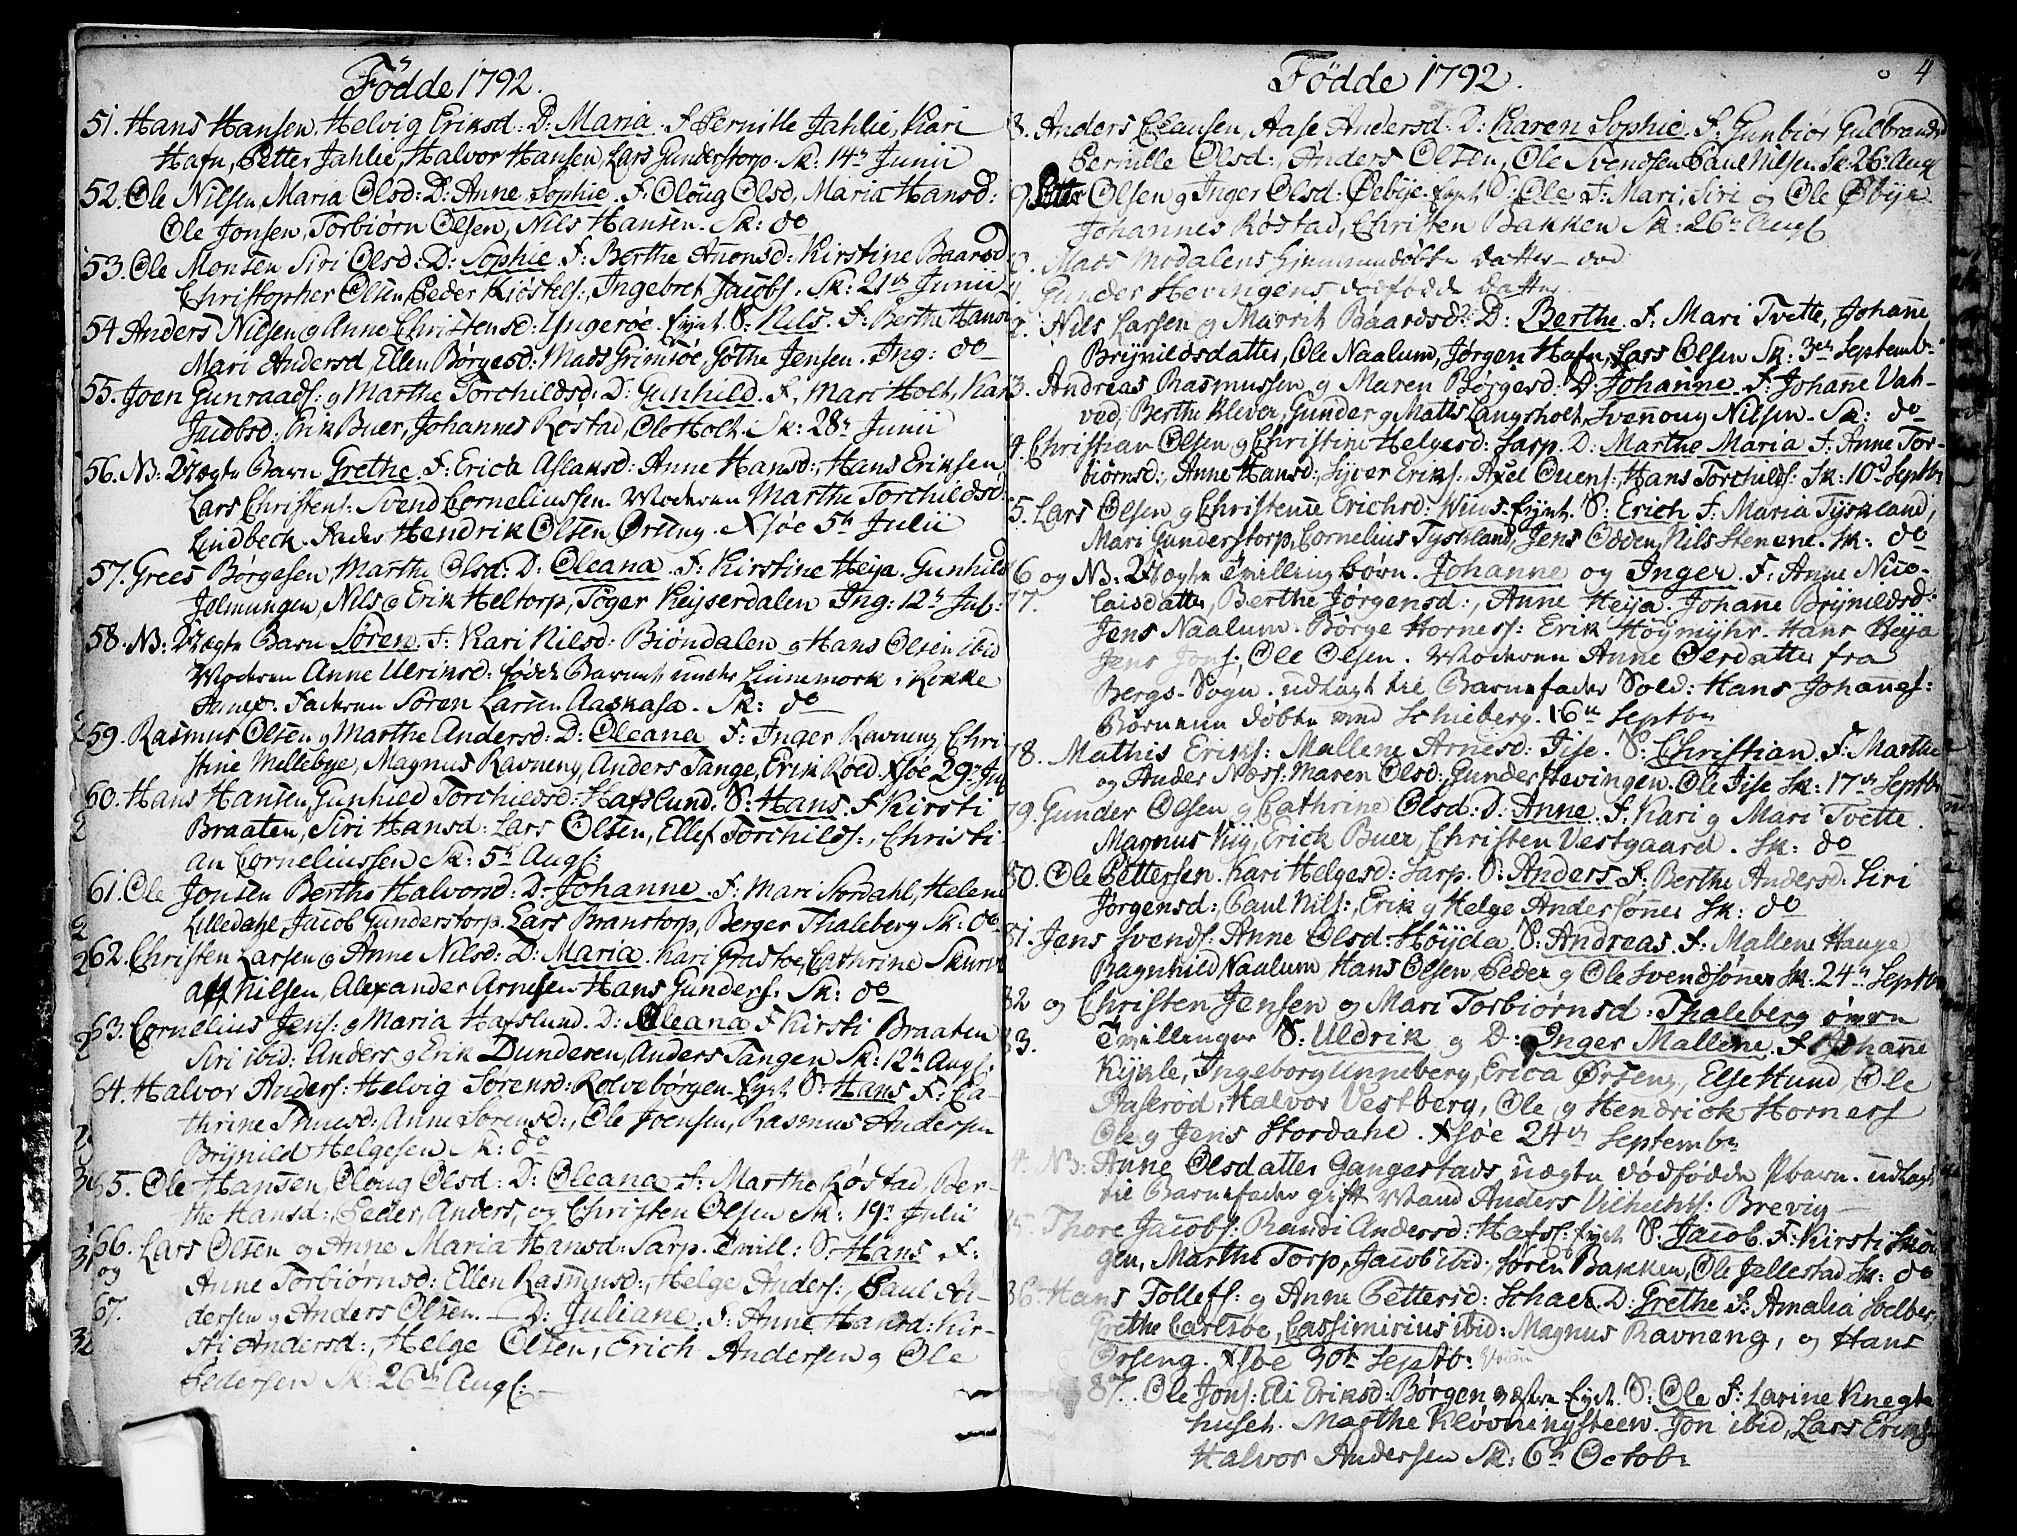 Födde 1792.
51. Hans Hansen, Helvig Eriksd: D: Maria. F Pernille Jahlie, Kari
Hafn, Petter Jahlie, Halvor Hansen, Lars Gunderstorp. Sk: 14de Junii
52. Ole Nilsen, Maria Olsd: D: Anne Sophie. F. Oloug Olsd, Maria Hansd:
Ole Jonsen, Torbiørn Olsen, Nils Hansen. Sk: do
53. Ole Monsen Siri Olsd: D: Sophie. F: Berthe Anonsd: Kirstine Baarsd
Christopher Olsen, Peder Kiøstels:, Ingebret Jacobs. Sk: 21de Junii
54 Anders Nilsen g Anne Christensd: Yngesøe. S: Nils. F: Berthe Hansd
Mari Andersd, Ellen Børgesd: Mads Grimsøe, Gothe Jensen. Ing: do
55. Joen Gunraads: g Marthe Torchildsd: D: Gunhild. F, Mari Holt, Kari
Jacobsd: Erik Buer, Johannes Røstad, Ole Holt. Sk: 28de Junii
56. NB: Uægte Barn Grethe. F: Erica Aslaksd: Anne Hansd:, Hans Eriksen
Lars Christens: Svend Corneliussen. Moderen Marthe Torchildsd:
Lindbeck. Fader Hendrik Olsen Ørseng. Xsøe 5te Julii
57. Grees Børgesen, Marthe Olsd: D: Oleana. F: Kirstine Heija. Gunhild
Jelmungen, Nils g Erik Heltorp, Tøger Keyserdalen Ing: 12te Jul:
58. NB: Uægte Barn Søren. F: Kari Nilsd: Biøndalen g Hans Olsen ibid
Moderen Anne Ulriksd: fødde Barnet under Linnemork i Kokke
Faderen Søren Larsen Aaskasa. Sk: do
59. Rasmus Olsen g Marthe Andersd: D: Oleana F: Inger Ravneng Chri
stine Mellebye, Magnus Ravneng, Anders Tange, Erik Roed. Xsøe 29de Jul
60. Hans Hansen, Gunhild Torchildsd: Hafslund. S: Hans. F Kirsti
Braaten, Siri Hansd: Lars Olsen, Ellef Torchilds:, Christi
an Corneliussen Sk: 5te Augs:
61. Ole Jonsen Berthe Halvorsd: D: Johanne. F: Mari Stordahl, Helene
Lilledahl Jacob Gunderstorp. Lars Branstorp, Berger Thaleberg Sk: do
62. Christen Larsen g Anne Nilsd: D: Maria. Kari Grastoe, Cathrine Skurve
Nilsen, Alexander Arnesen Hans Gunders: Sk: do
63. Cornelius Jens: g Maria Hafslund. D: Oleana F Kirsti Braaten
Siri ibid: Anders g Erik Dunderen, Anders Tangen Sk: 12te Augs:
64. Halvor Anders: Helvig Sørensd: Rolvebørgen S: Hans F: Ca-
thrine Anne Sørensd:, Ole Joensen, Rasmus Andersen
Brijnild Helgesen Sk: do
65. Ole Hansen, Oloug Olsd: D: Oleana F: Marthe Røstad, Ber-
the Hansd:, Peder, Anders, og Christen Olsen Sk: 19de Julii
66. Lars Olsen g Anne Maria Hansd: Sarp. Tvill: S: Hans F:
og
Anne Torbiørnsd: Ellen Rasmusd:, Helge Anders:, Paul An-
67.
dersen g Anders Olsen. — D: Juliane. F: Anne Hansd: Kir-
sti Andersd:, Helge Olsen, Erich Andersen g Ole
Pedersen Sk: 26de Augs:
Födde 1792.
4
8. Anders Clausen, Aase Andersd: D: Karen Sophie. F: Gunbiør Gulbrandsd
Pernille Olsd:, Anders Olsen, Ole Svendsen Paul Nilsen Sk: 26de Aug
9. Petter Olsen g Inger Olsd: Øebije. S: Ole F: Mari, Siri og Ole Øbije
Johannes Røstad, Christen Bakken Sk: 26de Augs
Mads Modalens hjemmedøbte Datter død
Gunder Hevingens dødfødde Datter
2. Nils Larsen g Marrit Baardsd: D: Berthe. F: Mari Tvette, Johanne
Brijnildsdatter, Ole Naalum, Jørgen Hafn, Lars Olsen Sk: 3de Septemb:
3. Andreas Rasmussen g Maren Børgesd. D. Johanne. F: Johanne Vah-
ved, Berthe Klever, Gunder g Matts Langsholt, Svenoug Nilsen. Sk: do
4. Christian Olsen g Christine Helgesd: Sarp. D: Marthe Maria F: Anne Tor-
biørnsd:, Anne Hansd:, Syver Eriks:, Axel Ouens:, Hans Torchilds: Sk: 10de Septbr
5. Lars Olsen g Christenne Erichsd: S: Erich F: Maria Tyskland,
Mari Gunderstorp, Cornelius Tyskland, Jens Odden, Nils Stenene. Sk: do
6 og NB: Uægte Tvillingbørn. Johanne og Inger. F: Anne Nico-
77.
laisdatter, Berthe Jørgensd:, Anne Heija. Johanne Brijnildsd:
Jens Naalum. Børge Horness: Erik Høymyhr. Hans Heija
Jens Jons: Ole Olsen. Moderen Anne Olsdatter fra
Bergs-Sogn. udlagt til Barnefader Sold: Hans Johanes:
Børnene døbte ved Schieberg. 16de Septbr
78. Mathis Eriks: Mallene Arnesd: Jise. S: Christian. F: Marthe
og Ander Næss: Maren Olsd: Gunder Hevingen. Ole Jise Sk: 17de Septbr
79. Gunder Olsen g Cathrine Olsd: D: Anne F: Kari g Mari Tvette.
Magnus Kiig, Erick Buer, Christen Vestgaard. Sk: do
80. Ole Pettersen. Kari Helgesd: Sarp. S: Anders F: Berthe Andersd: Siri
Jørgensd:, Paul Nils:, Erik g Helge Andersønner Sk: do
81. Jens Svends: Anne Olsd: Høijda S: Andreas F: Mallene Hauge
Bagnhild Naalum Hans Olsen Peder g Ole Svendsøner Sk: 24de Septbr
82 og Christen Jensen g Mari Torbiørnsd: Thaleberg
83.
Tvillinger S: Uldrik g D: Inger Mallene. F Johanne
Kijkle, Ingeborg Unneberg, Erica Ørseng, Else Hund, Ole
Aaserød, Halvor Vestberg, Ole g Hendrick Horness
Ole g Jens Stordahl. Xsøe 24de Septembr
4. NB: Anne Olsdatter Gangestads uægte dødfødde Pbarn. udlagt
til Barnefader gift Mand Anders Vilhelms: Brevig
85. Thore Jacobs: Randi Andersd: Hafs: S: Jacob. F: Kirsti Skou
gen, Marthe Torp, Jacob ibid. Søren Bakken, Ole Jellestad Sk: do
86. Hans Tollefs: g Anne Pettersd: Schaer D: Grethe F: Amalia Solber
Grethe Carlsøe, Cassimirius ibid: Magnus Ravneng, og Hans
Ørseng. Xsøe 30te Septb:
87. Ole Jons: Eli Eriksd: Børgen S: Ole F: Larine Knegte
huset. Marthe Kløvningsteen. Jon ibid, Lars Eriks
Halvor Andersen Sk: 6te Octob: